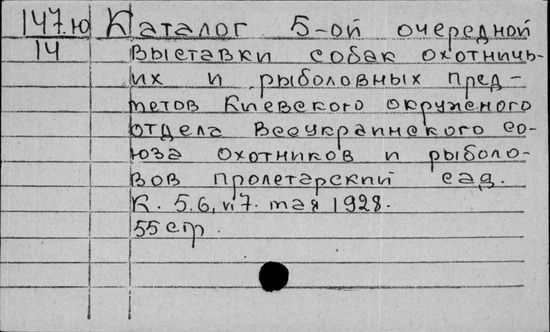 147.ю Каталог 5-ой очередной
14 выставки собак охотничь-
их и рыболовных пред-
метов Киевского окружного
отдела Всеукраинского со-
юза охотников и рыболо-
вов пролетарский сад.
К. 5.6, и 7. мая 1928.
55 стр.